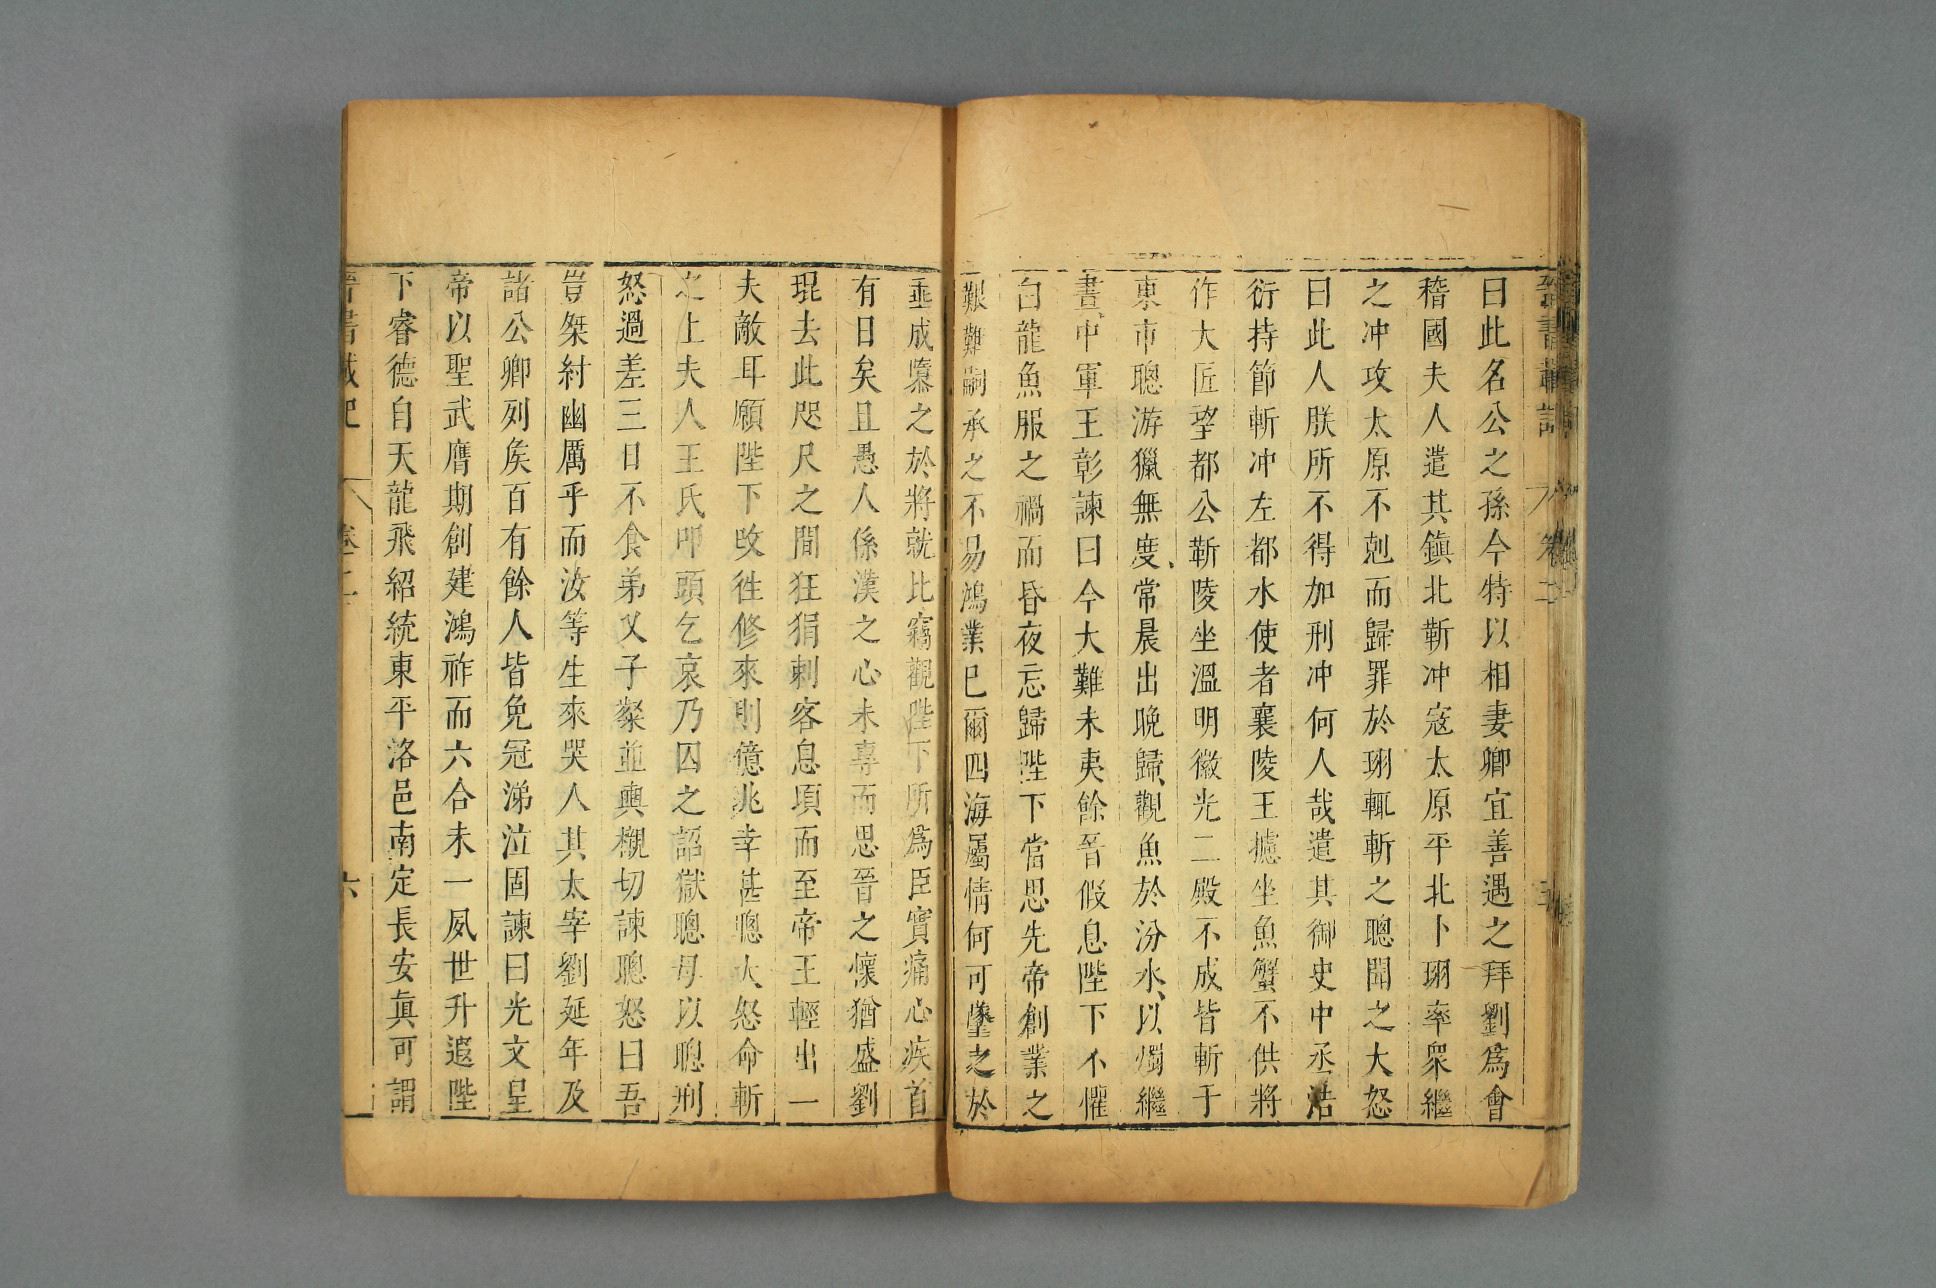 晉書載記
卷二
五
曰此名公之孫今特以相妻卿宜善遇之拜劉爲會
稽國夫人遣其鎮北靳冲寇太原平北卜珝率衆繼
之冲攻太原不剋而歸罪於珝輒斬之聰聞之大怒
曰此人朕所不得加刑冲何人哉遣其御史中丞浩
衍持節斬冲左都水使者襄陵王攄坐魚蟹不供將
作大匠望都公靳陵坐溫明徽光二殿不成皆斬于
東市聰游獵無度常晨出晚歸觀魚於汾水以燭繼
晝中軍王彰諫曰今大難未夷餘晉假息陛下不懼
白龍魚服之禍而昏夜忘歸陛下當思先帝創業之
艱難嗣承之不易鴻業已爾四海屬情何可墜之於
垂成隳之於將就比竊觀陛下所爲臣實痛心疾首
有日矣且愚人係漢之心未專而思晉之懷猶盛劉
琨去此咫尺之間狂狷刺客息頃而至帝王輕出一
夫敵耳願陛下改往修來則億兆幸甚聰大怒命斬
之上夫人王氏叩頭乞哀乃囚之詔獄聰母以聰刑
怒過差三日不食弟乂子粲並輿櫬切諫聰怒曰吾
豈桀紂幽厲乎而汝等生來哭人其太宰劉延年及
諸公卿列矦百有餘人皆免冠涕泣固諫曰光文皇
帝以聖武膺期創建鴻祚而六合未一夙世升遐陛
下睿德自天龍飛紹統東平洛邑南定長安眞可謂
晉書載記
卷二
六